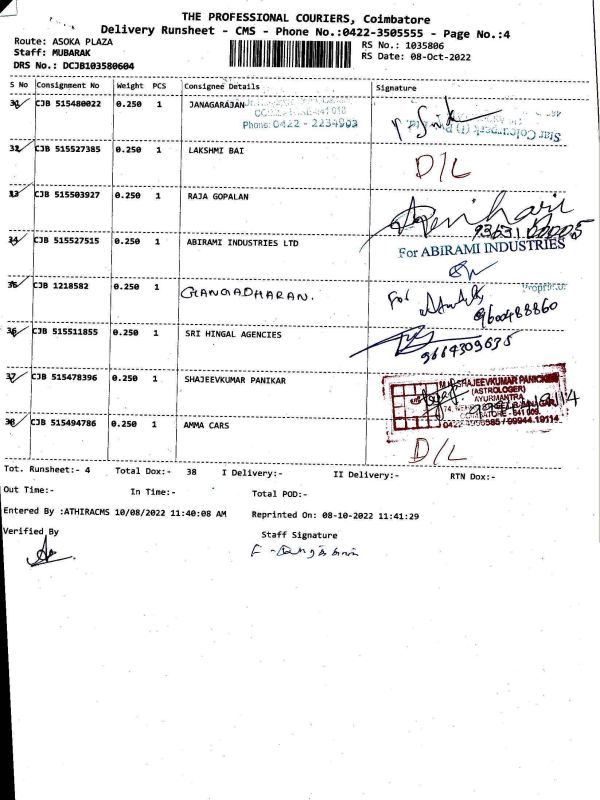 THE PROFESSIONAL COURIERS, Coimbatore
Delivery Runsheet - CMS - Phone No.:0422-3505555 - Page No.:4
Route: ASOKA PLAZA
Staff: MUBARAK
DRS No.: DCJB103580604
RS No.: 1035806
RS Date: 08-Oct-2022
S No Consignment No Weight PCS Consignee Details Signature
31 CJB 515480022 0.250 1 JANAGARAJAN
Phone: 0422 - 2234903
Star Colourpark (I) P Ltd.
32 CJB 515527385 0.250 1 LAKSHMI BAI D/L
33 CJB 515503927 0.250 1 RAJA GOPALAN
34 CJB 515527515 0.250 1 ABIRAMI INDUSTRIES LTD
For ABIRAMI INDUSTRIES
Proprietor
35 CJB 1218582 0.250 1 GANGADHARAN. For
9600488860
36 CJB 515511855 0.250 1 SRI HINGAL AGENCIES
9664309635
37 CJB 515478396 0.250 1 SHAJEEVKUMAR PANIKAR
SHAJEEVKUMAR PANICKER
(ASTROLOGER)
AYURMANTRA
COIMBATORE - 641 009.
99944 19114
38 CJB 515494786 0.250 1 AMMA CARS
D/L
Tot. Runsheet:- 4 Total Dox:- 38 I Delivery:- II Delivery:- RTN Dox:-
Out Time:- In Time:- Total POD:-
Entered By :ATHIRACMS 10/08/2022 11:40:08 AM Reprinted On: 08-10-2022 11:41:29
Verified By Staff Signature